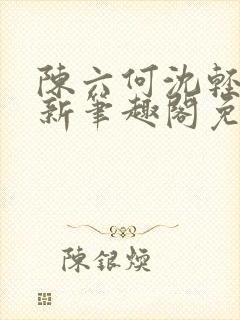 陳六何沈輕
新筆趣閣免
陳銀煥